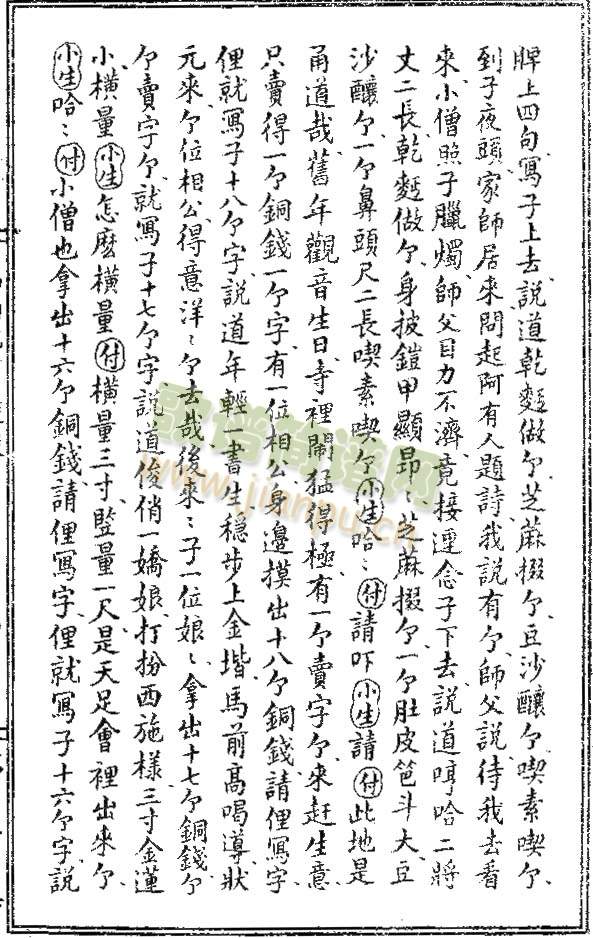 脾上四句寫子上去説道乾麫做个芝蔴掇个豆沙釀个喫素喫个
到子夜頭家師居来問起阿有人題詩我説有个師父説待我去看
來小僧照子臘燭師父目力不濟竟接連念子下去説道呵哈二將
丈二長乾麫做个身披鎧甲顯昂〻芝蔴掇个一个肚皮笆斗大豆
沙釀个一个鼻頭尺二長喫素喫个小生哈〻付請吓小生請付此地是
甬道哉舊年觀音生日寺裡鬧猛得極有一个賣字个來赶生意
只賣得一个銅錢一个字有一位相公身邊摸出十八个銅錢請俚寫字
俚就寫子十八个字説道年輕一書生穩步上金堦馬前高喝導狀
元來个位相公得意洋〻个去哉後來〻子一位娘〻拿出十七个銅錢个
个賣字个就寫子十七个字説道俊俏一嬌娘打扮西施樣三寸金蓮
小横量小生怎麽横量付横量三寸竪量一尺是天足會裡出來个
小生哈〻付小僧也拿出十六个銅錢請俚寫字俚就寫子十六个字説
歌谱简谱网
www.jianpu.cn